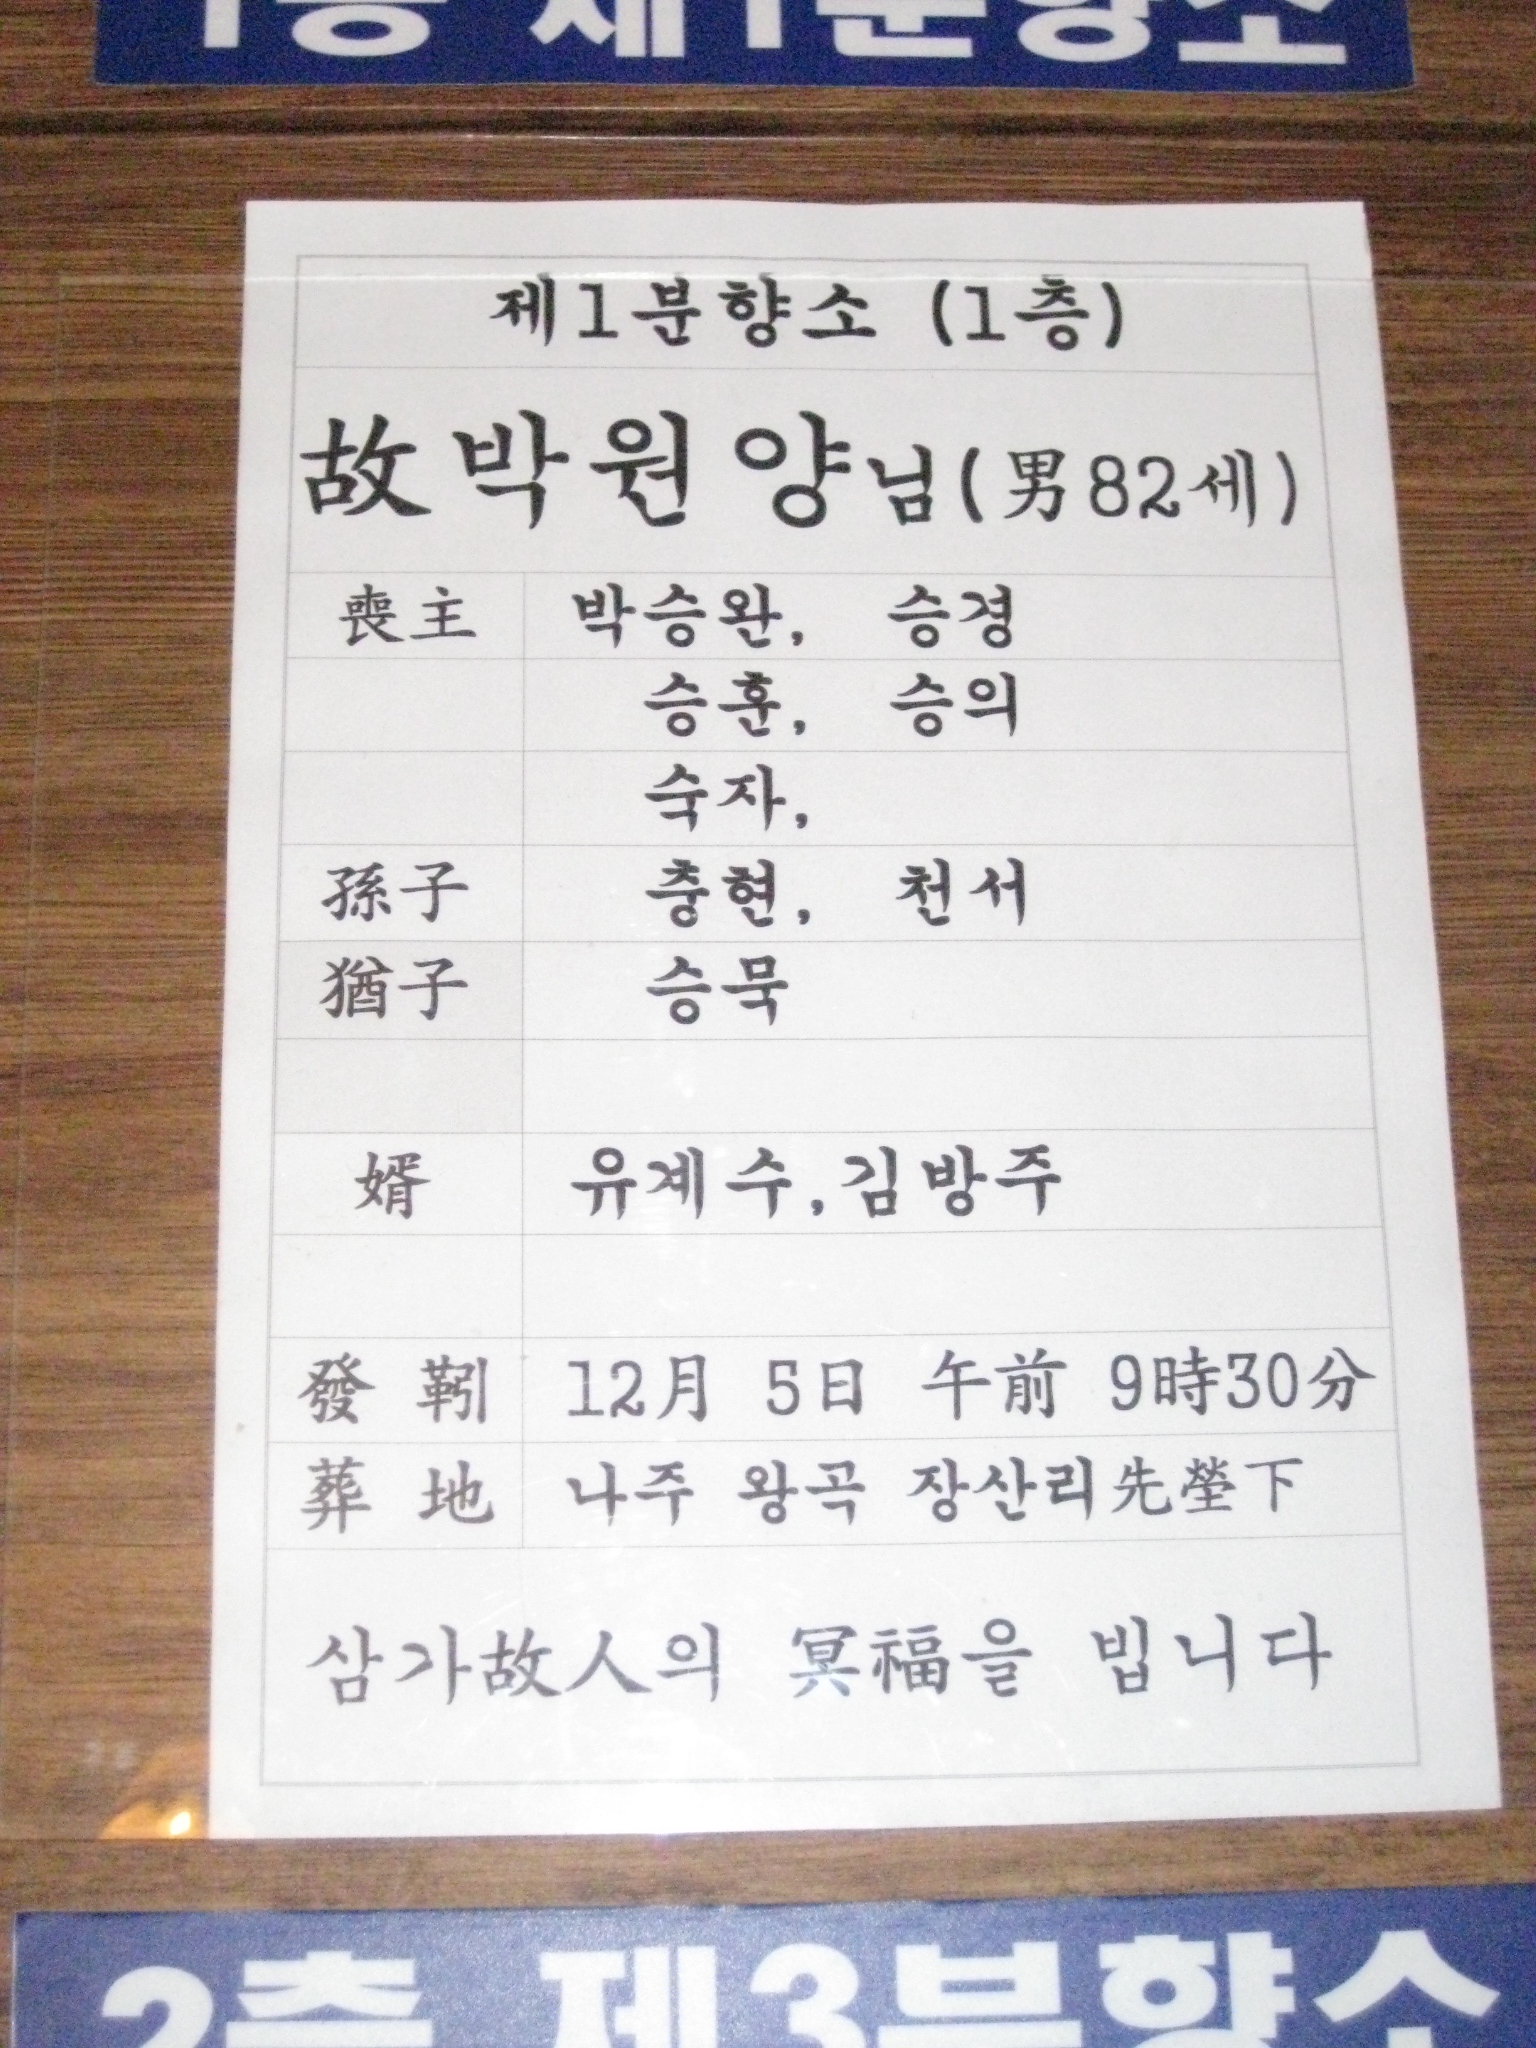 1층 제1분향소
제1분향소 (1층)
故박원양님(男82세)
喪主 박승완, 승경
승훈, 승의
숙자,
孫子 충현, 천서
猶子 승묵
婿 유계수,김방주
發 靷 12月 5日 午前 9時30分
葬 地 나주 왕곡 장산리先塋下
삼가故人의 冥福을 빕니다
2층 제3분향소